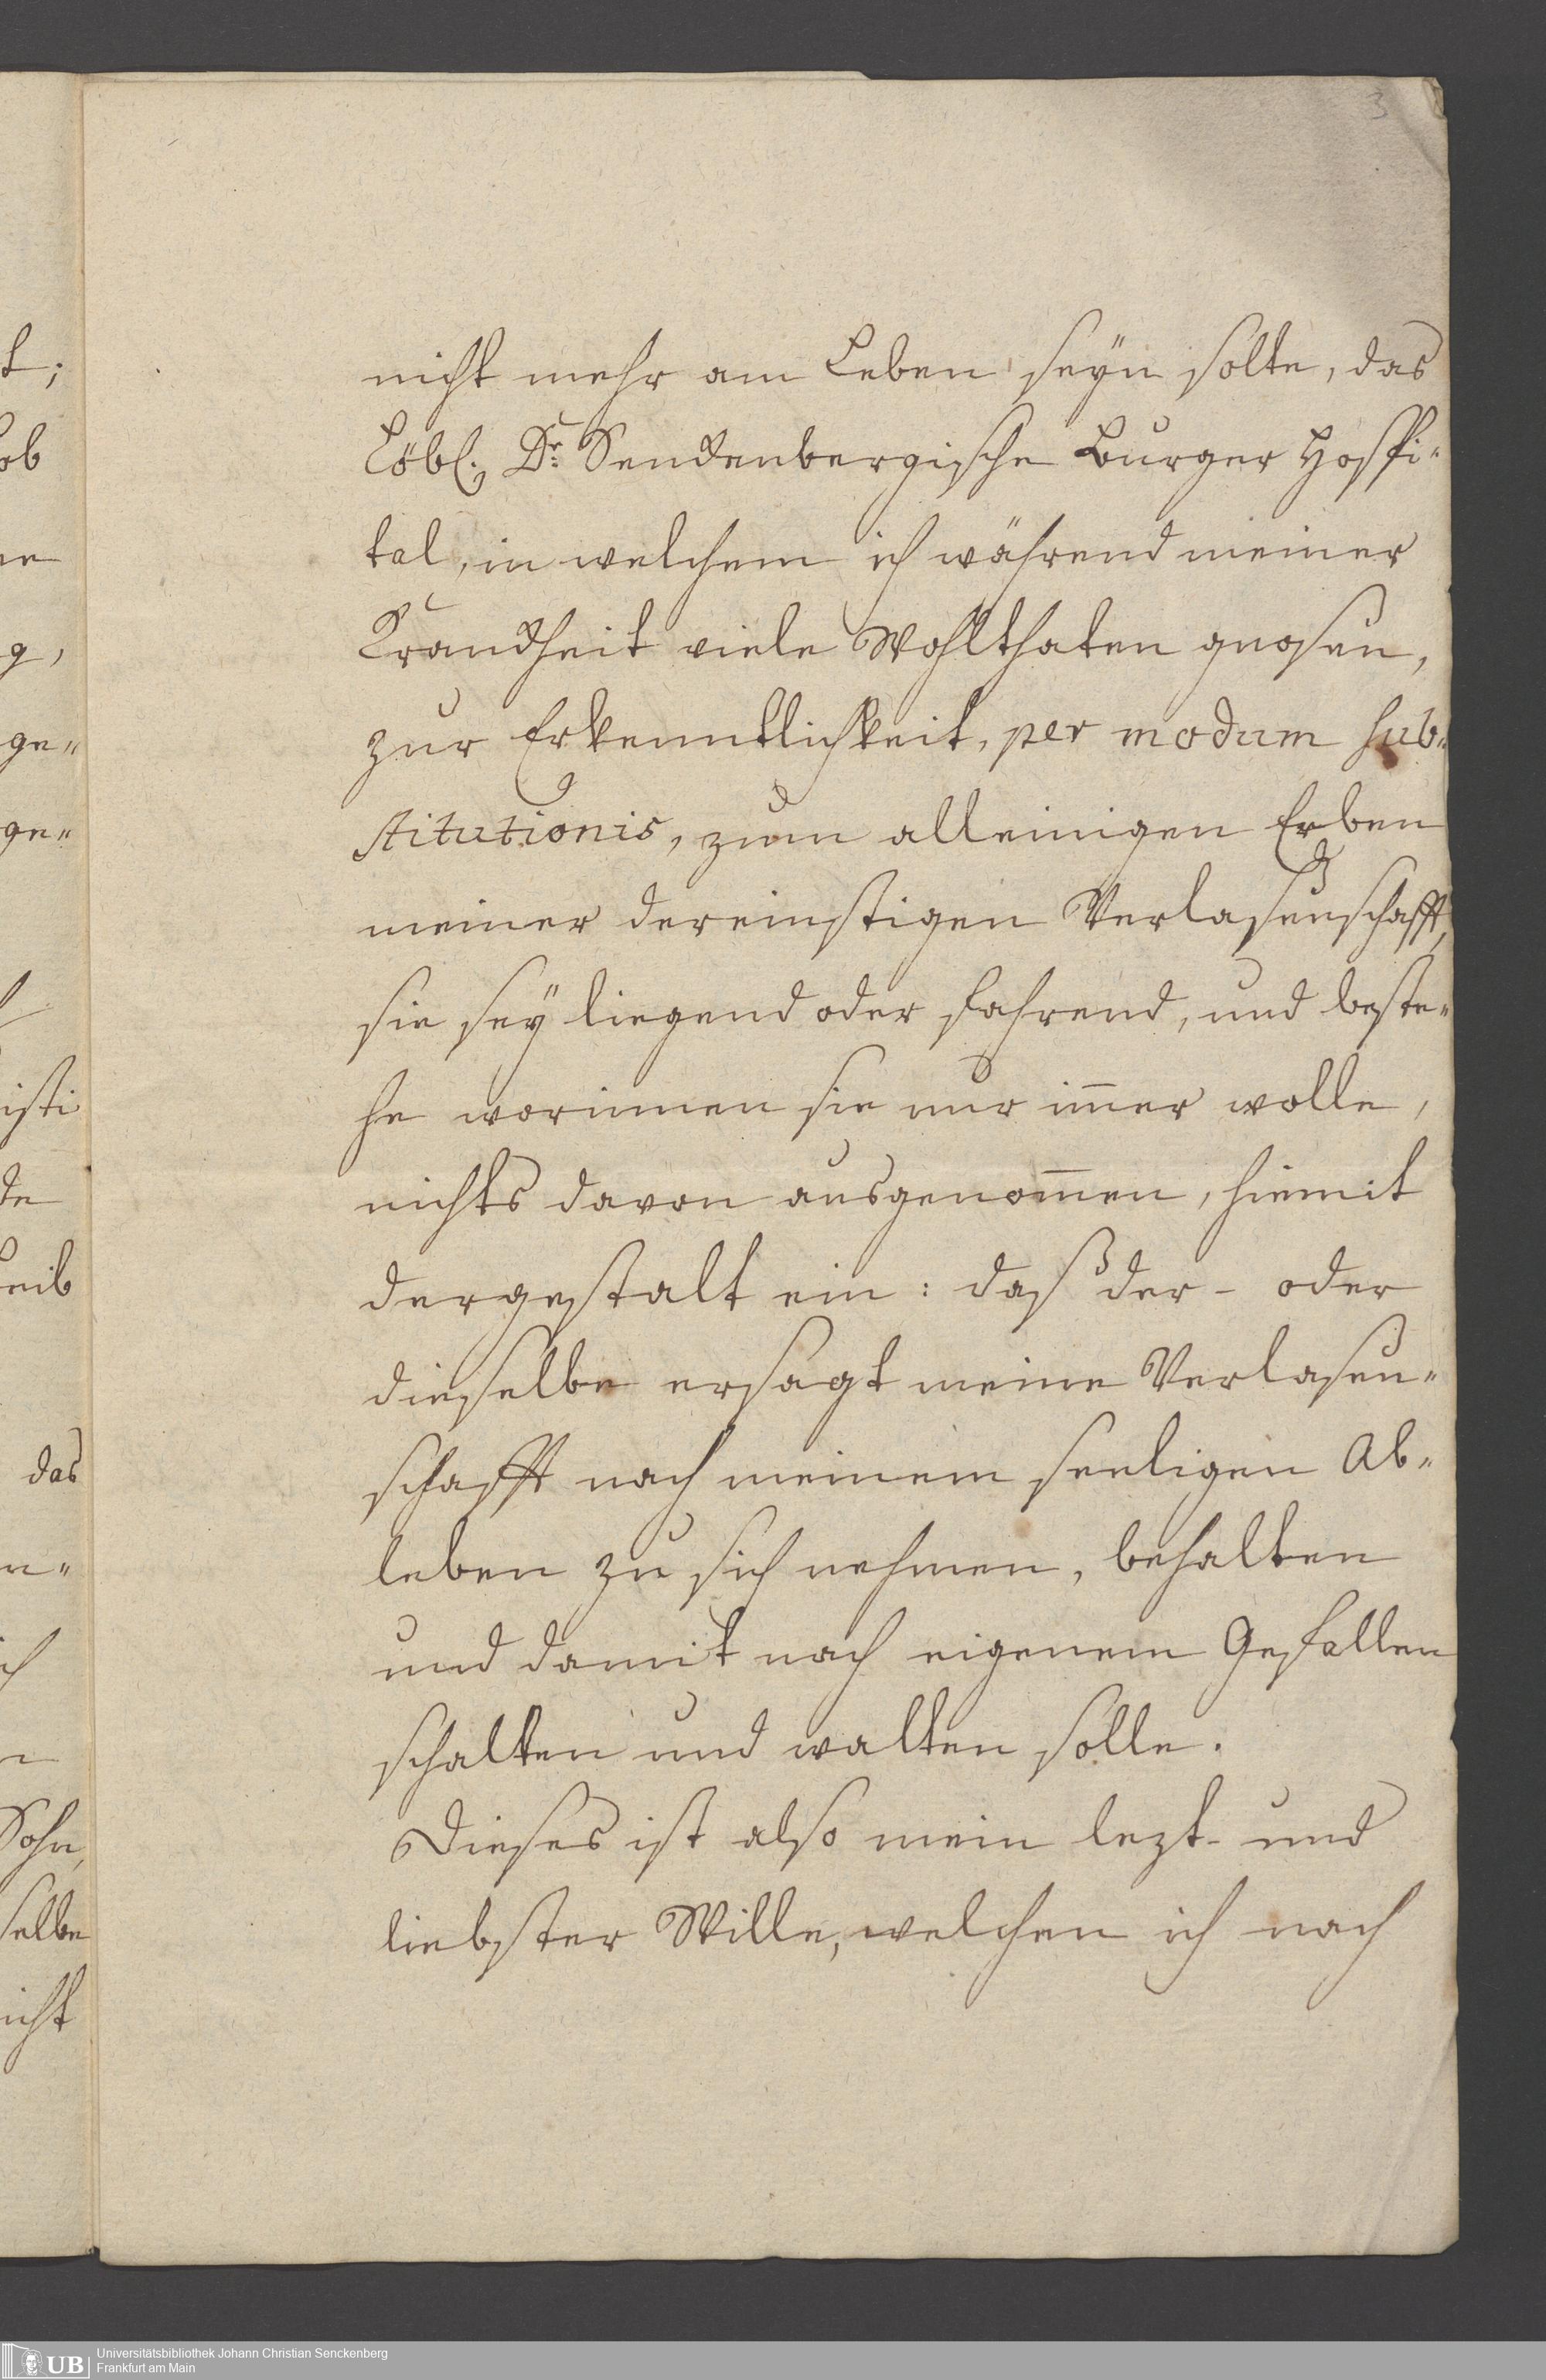 3
nicht mehr am Leben seÿn solte, das
Löbl. Dr. Senckenbergische Burger Hospi-
tal, in welchem ich während meiner
Kranckheit viele Wohlthaten gnosen,
zur Erkenntlichkeit, per modum sub-
stitutionis, zum alleinigen Erben
meiner dereinstigen Verlasenschafft,
sie seÿ liegend oder fahrend, und beste-
he worinnen sie nur im̄er wolle,
nichts davon ausgenom̄en, hiemit
dergestalt ein: daß der- oder
dieselbe ersagt meine Verlasen-
schafft nach meinem seeligen Ab-
leben zu sich nehmen, behalten
und damit nach eigenem Gefallen
schalten und walten solle.
Dieses ist also mein lezt- und
liebster Wille, welchen ich nach
t;
ob
g,
ge-
ge-
isti
de
eib
das
n-
ch
Sohn,
selbe
icht
UB
Universitätsbibliothek Johann Christian Senckenberg
Frankfurt am Main